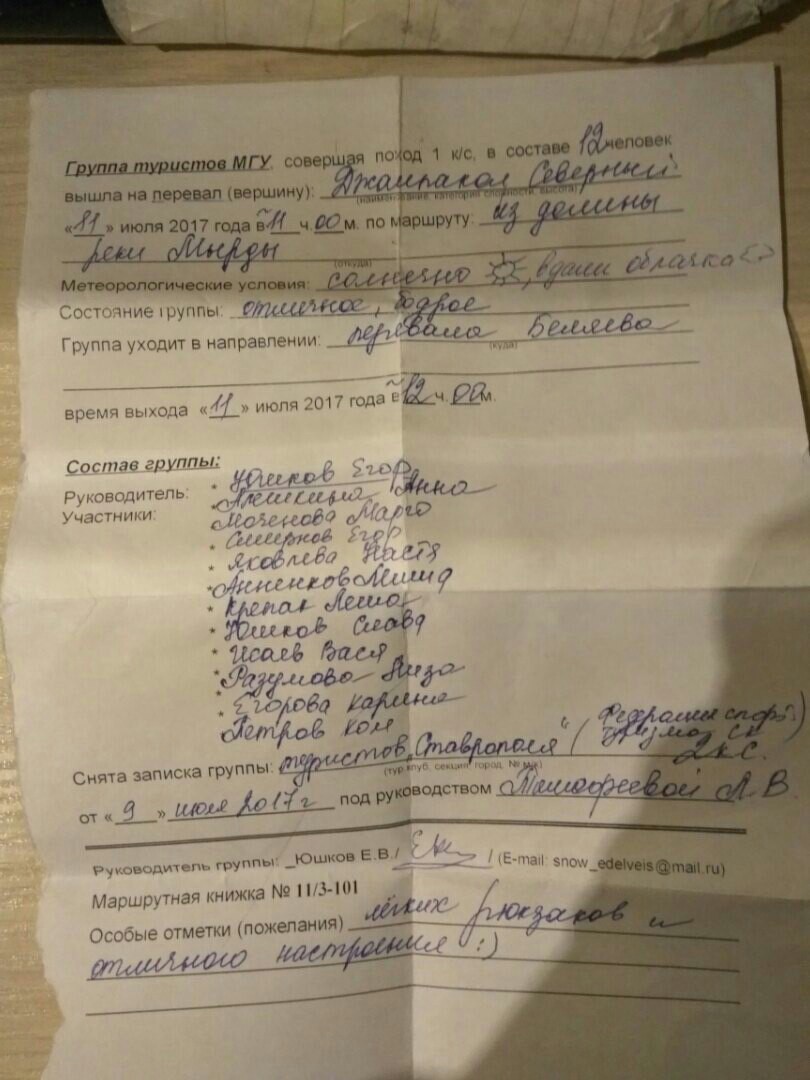 Группа туристов МГУ, совершая поход 1 к/с, в составе 12 человек
вышла на перевал (вершину): Джампакол Северный
(наименование, категория сложности, высота)
«11» июля 2017 года в ~11 ч. 00 м. по маршруту: из долины
реки Мырды
(откуда)
Метеорологические условия: солнечно, вдали облачка
Состояние группы: отличное, бодрое
Группа уходит в направлении: перевала Беляева
(куда)
время выхода «11» июля 2017 года в ~12 ч. 00 м.
Состав группы:
Руководитель: * Юшков Егор
Участники: * Анна
Моченова Марго
* Смирнов Егор
* Яковлева Настя
* Анненков Миша
* Крепак Леша
* Юшков Слава
* Исаев Вася
* Разумова Лиза
* Егорова Карина
Петров Коля
Снята записка группы: туристов „Ставрополя“ (Федерация спорт. туризма СК)
2 к.с.
(тур.клуб, секция, город, № м/к)
от «9» июля 2017 г под руководством Тимофеевой Л.В.
Руководитель группы: _Юшков Е.В./ / (E-mail: snow_edelveis@mail.ru)
Маршрутная книжка № 11/3-101
Особые отметки (пожелания) лёгких рюкзаков и
отличного настроения :)